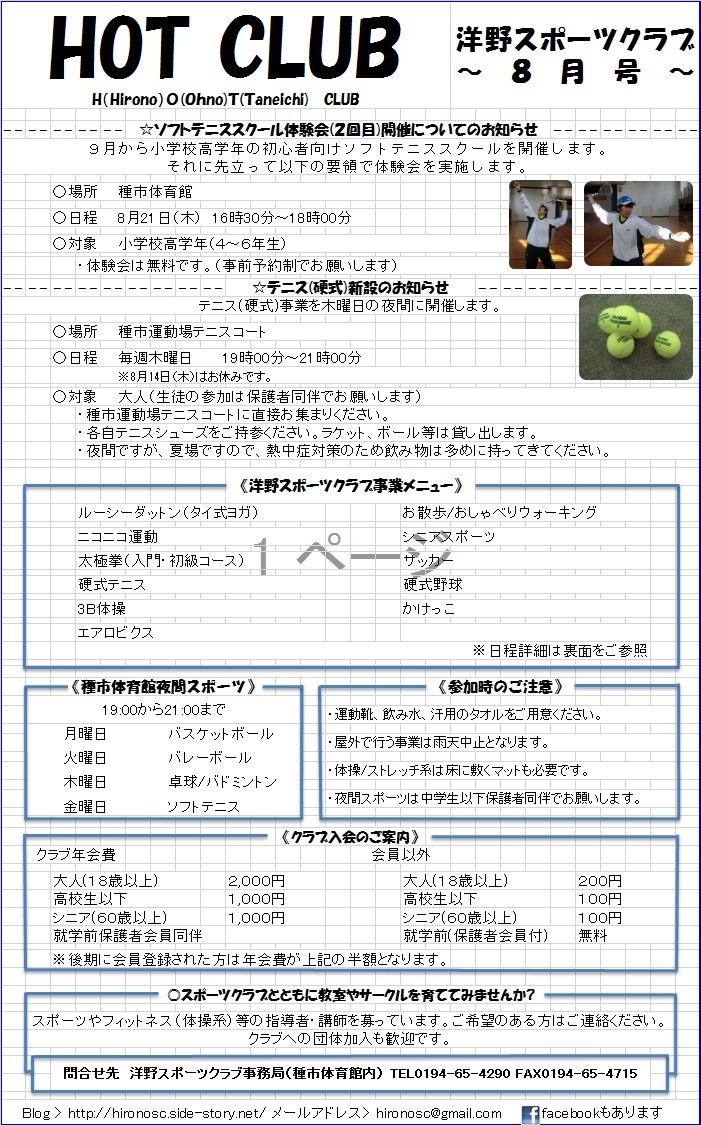 HOT CLUB
H(Hirono) O(Ohno)T(Taneichi) CLUB
洋野スポーツクラブ
～ 8 月 号 ～
☆ソフトテニススクール体験会(2回目)開催についてのお知らせ
９月から小学校高学年の初心者向けソフトテニススクールを開催します。
それに先立って以下の要領で体験会を実施します。
○場所 種市体育館
○日程 8月21日(木) 16時30分～18時00分
○対象 小学校高学年(4～6年生)
・体験会は無料です。(事前予約制でお願いします)
☆テニス(硬式)新設のお知らせ
テニス(硬式)事業を木曜日の夜間に開催します。
○場所 種市運動場テニスコート
○日程 毎週木曜日 19時00分～21時00分
※8月14日(木)はお休みです。
○対象 大人(生徒の参加は保護者同伴でお願いします)
・種市運動場テニスコートに直接お集まりください。
・各自テニスシューズをご持参ください。ラケット、ボール等は貸し出します。
・夜間ですが、夏場ですので、熱中症対策のため飲み物は多めに持ってきてください。
《洋野スポーツクラブ事業メニュー》
ルーシーダットン(タイ式ヨガ) お散歩/おしゃべりウォーキング
ニコニコ運動 シニアスポーツ
太極拳(入門・初級コース) サッカー
1 ページ
硬式テニス 硬式野球
3B体操 かけっこ
エアロビクス
※日程詳細は裏面をご参照
《種市体育館夜間スポーツ》
19:00から21:00まで
月曜日 バスケットボール
火曜日 バレーボール
木曜日 卓球/バドミントン
金曜日 ソフトテニス
《参加時のご注意》
・運動靴、飲み水、汗用のタオルをご用意ください。
・屋外で行う事業は雨天中止となります。
・体操/ストレッチ系は床に敷くマットも必要です。
・夜間スポーツは中学生以下保護者同伴でお願いします。
《クラブ入会のご案内》
クラブ年会費 会員以外
大人(18歳以上) 2,000円 大人(18歳以上) 200円
高校生以下 1,000円 高校生以下 100円
シニア(60歳以上) 1,000円 シニア(60歳以上) 100円
就学前保護者会員同伴 就学前(保護者会員付) 無料
※後期に会員登録された方は年会費が上記の半額となります。
○スポーツクラブとともに教室やサークルを育ててみませんか？
スポーツやフィットネス(体操系)等の指導者・講師を募っています。ご希望のある方はご連絡ください。
クラブへの団体加入も歓迎です。
問合せ先 洋野スポーツクラブ事務局(種市体育館内) TEL0194-65-4290 FAX0194-65-4715
Blog > http://hironosc.side-story.net/ メールアドレス> hironosc@gmail.com facebookもあります